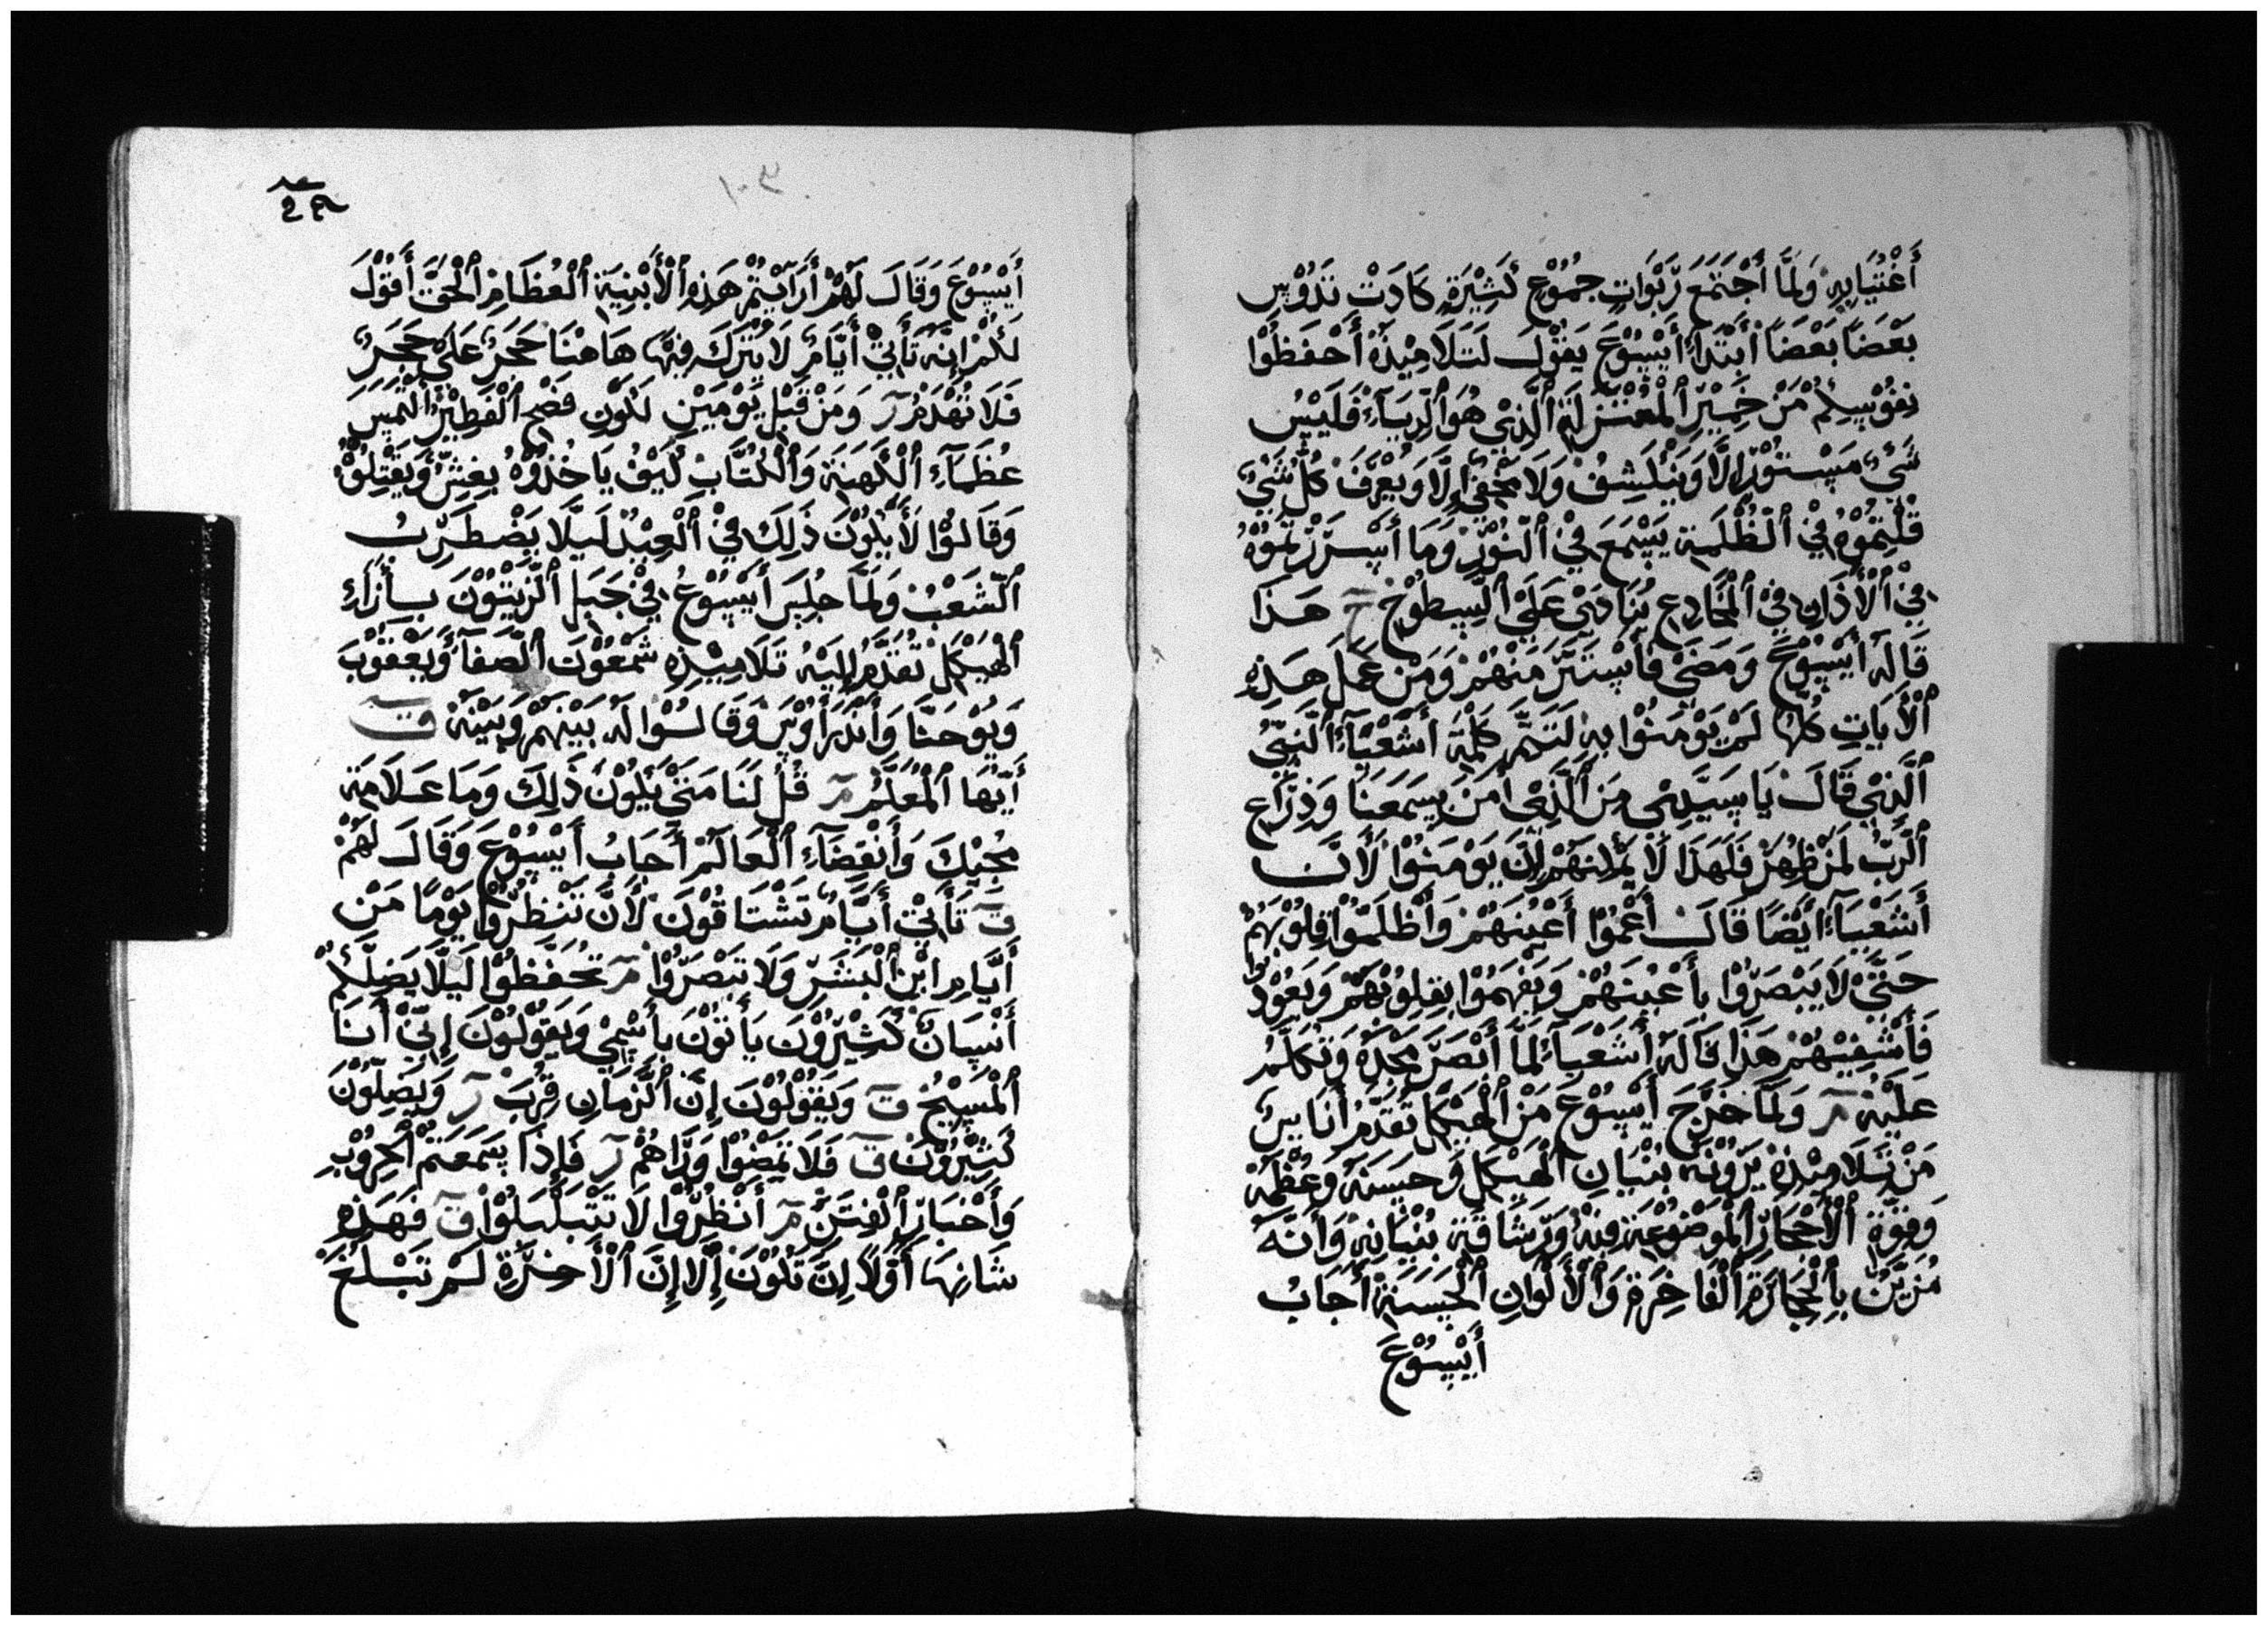 أغتيابه ولما أجتمع ربوات جموع كثيرة كادت تدوس
بعضا بعضا أبتدأ أيسوع يقول لتلاميذه أحفظوا
نفوسكم من خمير المعتزلة الذي هو الرياء فليس
شيء مستور إلا وينكشف ولا مخفي إلا ويعرف كل شيء
قلتموه في الظلمة يسمع في النور وما أسررتموه
في الأذان في المخادع ينادى على السطوح ح هذا
قاله أيسوع ومضى فأستتر منهم ومن عمل هذه
الأيات كلها لم يومنوا به لتتم كلمة أشعياء النبي
الذي قال يا سيدي من الذي أمن بسمعنا وذراع
الرب لمن ظهر فلهذا لا يمكنهم إن يومنوا لأن
أشعياء أيضا قال أعموا أعينهم وأظلموا قلوبهم
حتى لا يبصروا بأعينهم ويفهموا بقلوبهم ويعودوا
فأشفيهم هذا قاله أشعياء لما أبصر مجده وتكلم
عليه مر ولما خرج أيسوع من الهيكل تقدم أناس
من تلاميذه يرونه بنيان الهيكل وحسنه وعظمه
وقوة الأحجار الموضوعة فيه ورشاقة بنيانه وأنه
مزين بالحجارة الفاخرة والألوان الحسنة أجاب
أيسوع
أيسوع وقال لهم أرأيتم هذه الأبنية العظام الحق أقول
لكم إنه تأتي أيام لا يترك فيها هاهنا حجر على حجر
فلا تهدم ر ومن قبل يومين لكون فصح الفطير ألتمس
عظماء الكهنة والكتاب كيف ياخذوه بغش ويقتلوه
وقالوا لا يكون ذلك في العيد ليلا يضطرب
الشعب ولما جلس أيسوع في جبل الزيتون بأزاء
الهيكل تقدم إليه تلاميذه شمعون الصفا ويعقوب
ويوحنا وأندراوس وقالوا له بينهم وبينه ق
أيها المعلم مر قل لنا متى يكون ذلك وما علامة
مجيك وأنقضاء العالم أجاب أيسوع وقال لهم
ق تأتي أيام تشتاقون لأن تنظروا يوما من
أيام ابن البشر ولا تبصروا مر تحفظوا ليلا يضلكم
أنسان كثيرون يأتون بأسمي ويقولون إني أنا
المسيح ق ويقولون إن الزمان قرب ر ويضلون
كثيرون ق فلا تمضوا وراهم ر فإذا سمعتم الحروب
وأخبار الفتن مر أنظروا لا تتبلبلوا ق فهذه
شانها أولا إن تكون إلا إن الأخرة لم تبلغ